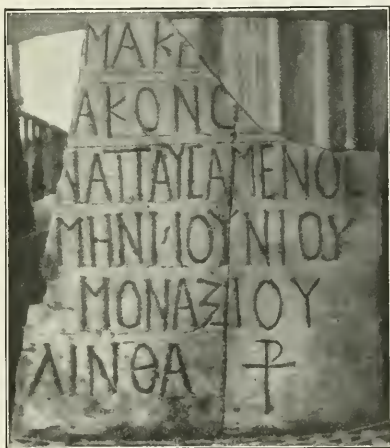 ΜΑΚΕ
ΑΚΟΝC
ΝΑΠΑΥCΑΜΕΝΟC
ΜΗΝΙ ΙΟΥΝΙΟΥ
ΜΟΝΑΞΙΟΥ
ΛΙΝΘΑ ⳨